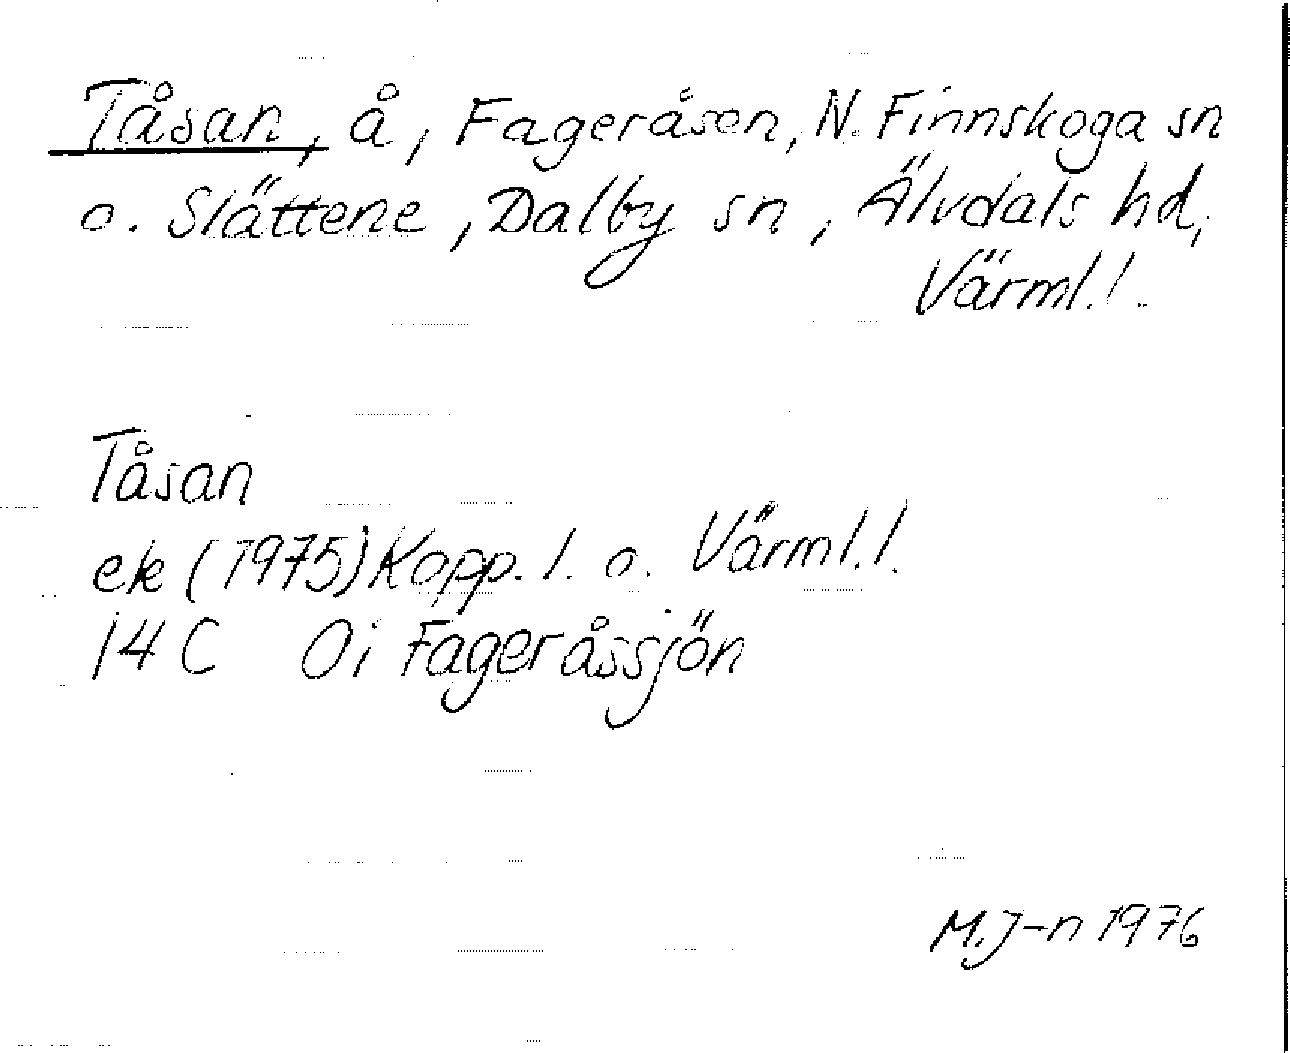 Tåsan, å, Fageråsen, N. Finnskoga sn
o. Slättene, Dalby sn, Älvdals hd,
Värml. l.
Tåsan
ek (1975) Kopp. l. o. Värml. l.
14 C Oi Fageråssjön
M. J-n 1976